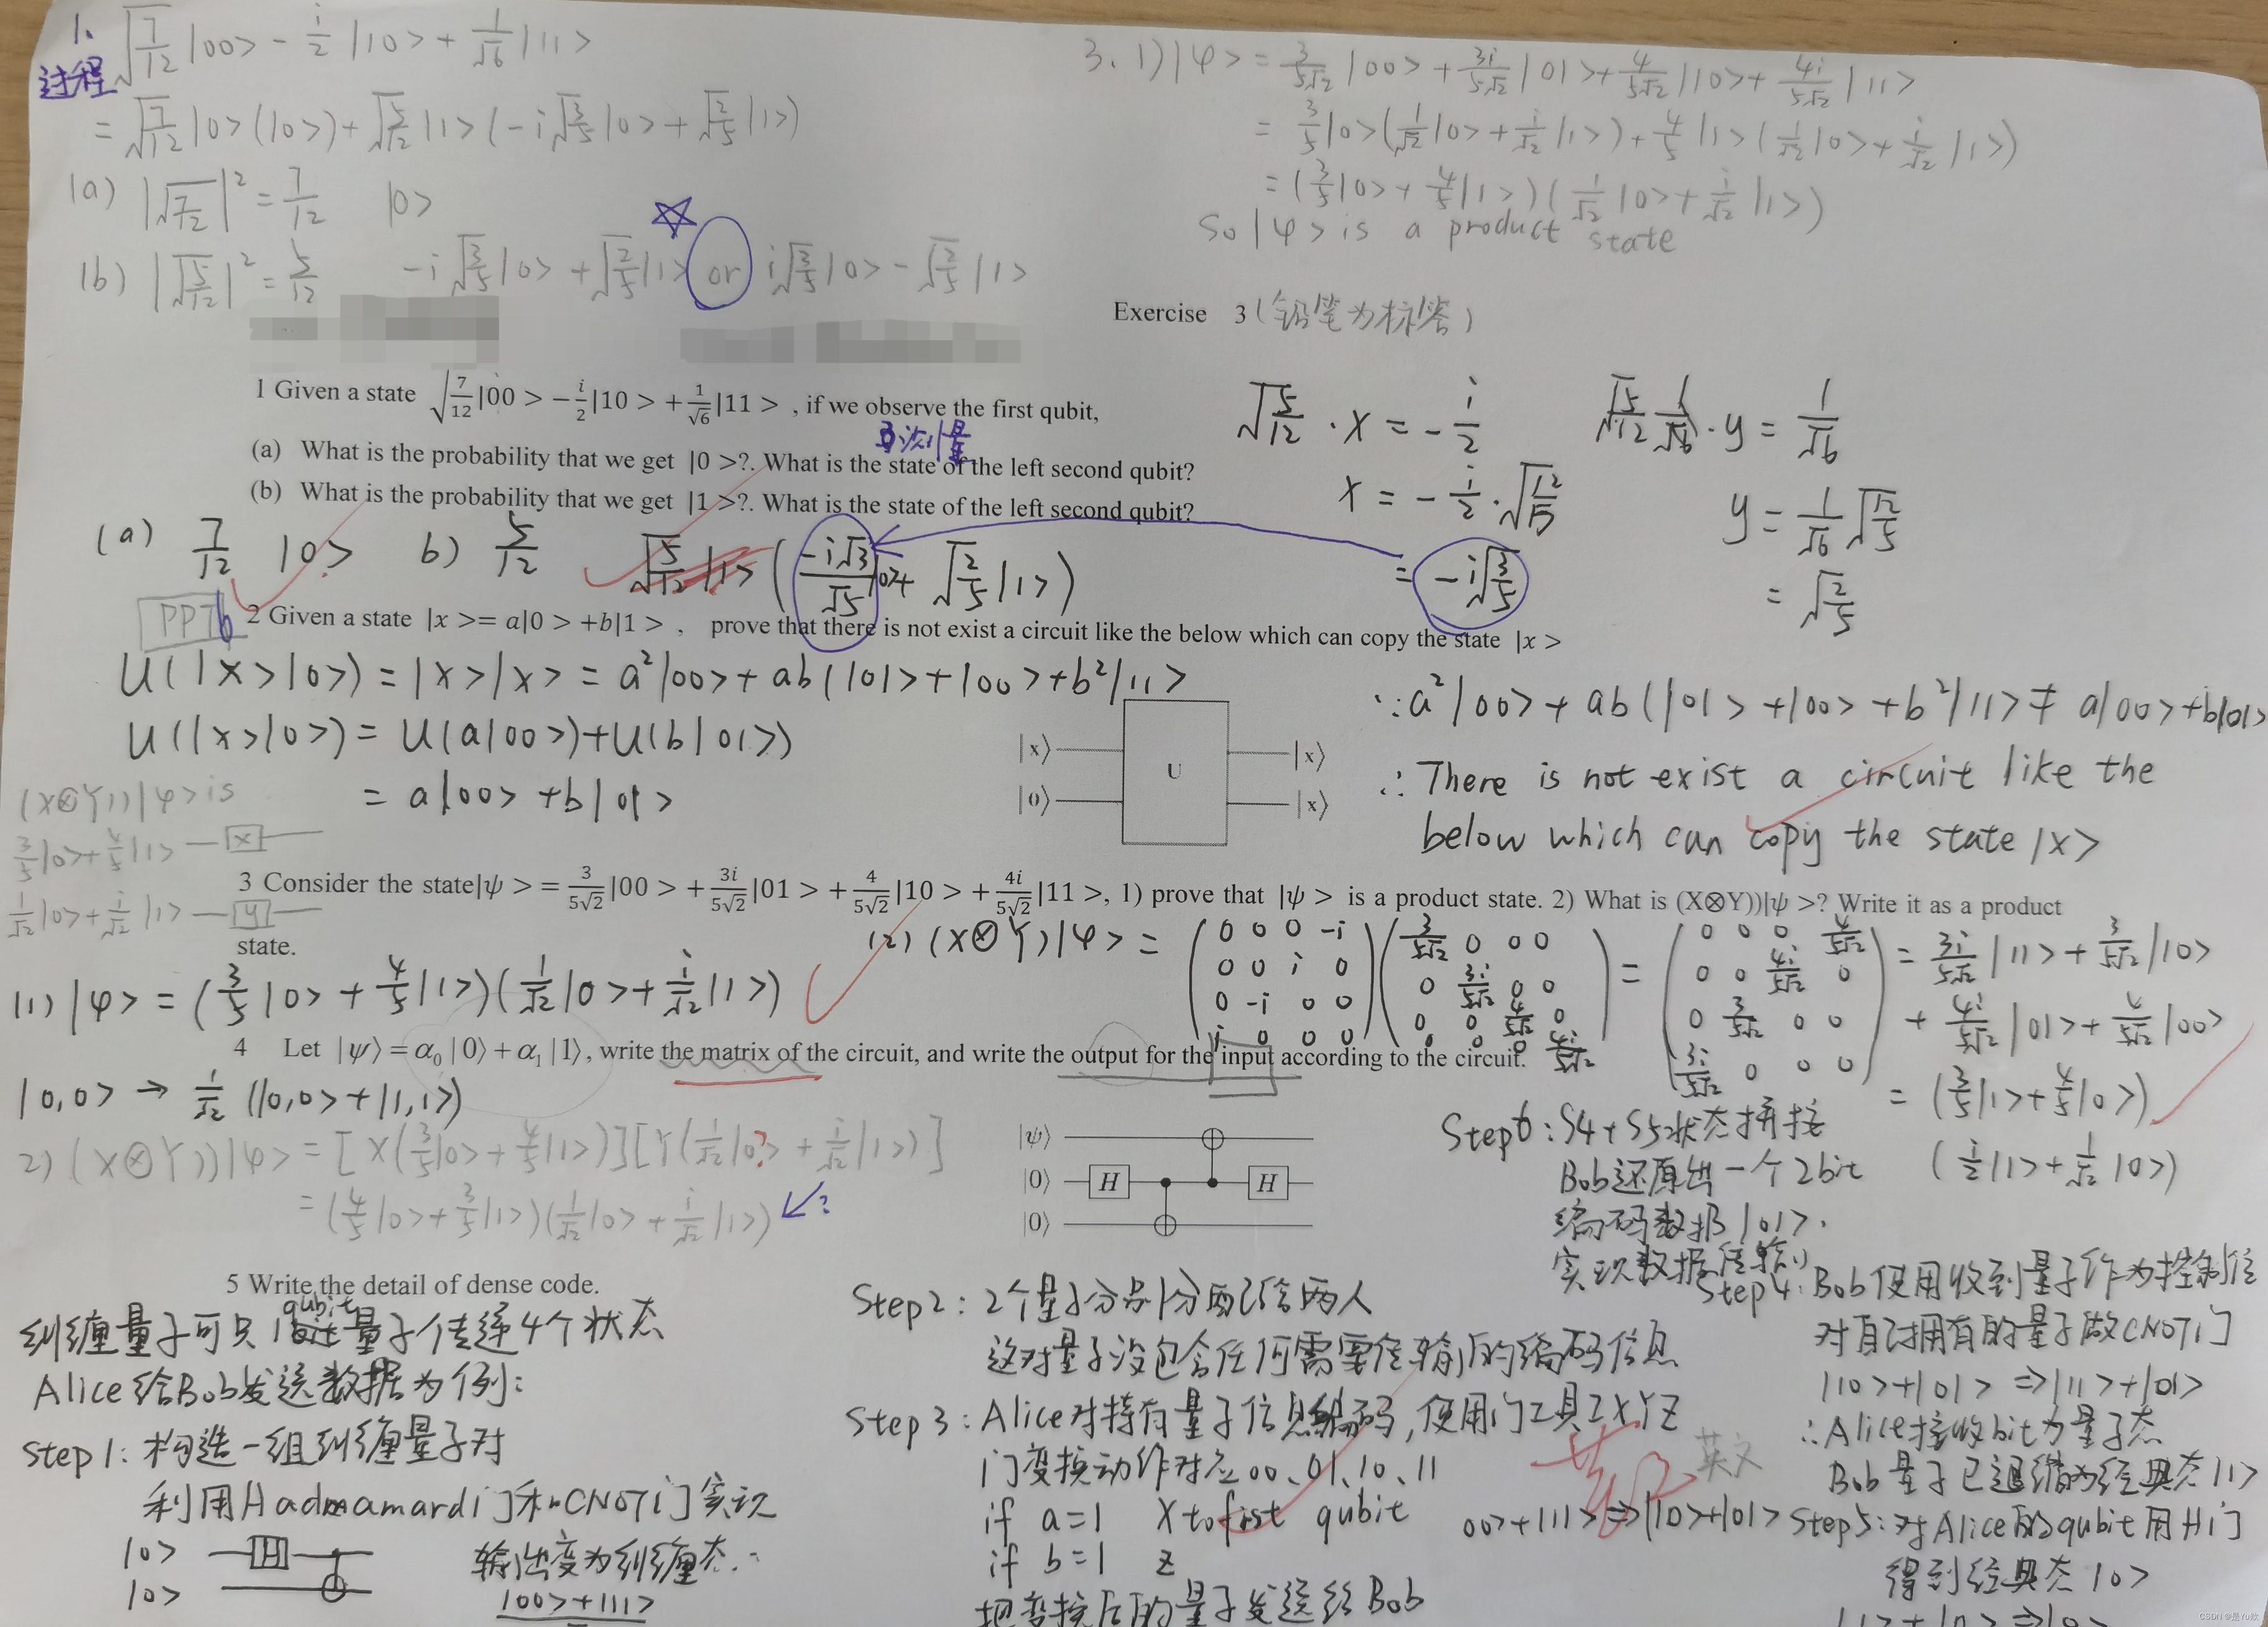 1、 √(7/12)|00> - i/2|10> + 1/√6|11>
过程
= √(7/12)|0>(|0>) + √(5/12)|1>(-i√(3/5)|0> + √(2/5)|1>)
(a) |√(7/12)|² = 7/12 |0>
(b) |√(5/12)|² = 5/12 -i√(3/5)|0> + √(2/5)|1> or i√(3/5)|0> - √(2/5)|1>
3. 1) |φ> = 3/5√2|00> + 3i/5√2|01> + 4/5√2|10> + 4i/5√2|11>
= 3/5|0>(1/√2|0> + i/√2|1>) + 4/5|1>(1/√2|0> + i/√2|1>)
= (3/5|0> + 4/5|1>)(1/√2|0> + i/√2|1>)
So |φ> is a product state
Exercise 3 (铅笔为标答)
1 Given a state √(7/12)|00 > -i/2|10 > +1/√6|11 > , if we observe the first qubit,
(a) What is the probability that we get |0 >?. What is the state of the left second qubit?
(b) What is the probability that we get |1 >?. What is the state of the left second qubit?
(a) 7/12 |0> b) 5/12 √(5/12)|1> (-i√3/√5|0>+ √(2/5)|1>)
√(5/12) · x = -i/2
x = -i/2 · √(12/5)
= -i√(3/5)
√(5/12) · y = 1/√6
y = 1/√6 √(12/5)
= √(2/5)
PPT6
2 Given a state |x >= a|0 > +b|1 > , prove that there is not exist a circuit like the below which can copy the state |x >
U(|x>|0>) = |x>|x> = a²|00> + ab(|01>+|00>+b²|11>
U(|x>|0>) = U(a|00>)+U(b|01>)
= a|00> +b|01>
|x⟩ U |x⟩
|0⟩ |x⟩
∵a²|00> + ab(|01> +|00> +b²|11> ≠ a|00>+b|01>
∴ There is not exist a circuit like the
below which can copy the state |x>
(X⊗Y))|φ> is
3/5|0>+4/5|1> — X —
1/√2|0>+i/√2|1> — y —
3 Consider the state|ψ > = 3/5√2|00 > +3i/5√2|01 > +4/5√2|10 > +4i/5√2|11 >, 1) prove that |ψ > is a product state. 2) What is (X⊗Y))|ψ >? Write it as a product
state.
(1) |φ> = (3/5|0> + 4/5|1>)(1/√2|0> + i/√2|1>)
(2) (X⊗Y)|φ> =
0 0 0 -i
0 0 i 0
0 -i 0 0
i 0 0 0
3/5√2 0 0 0
0 3i/5√2 0 0
0 0 4/5√2 0
0 0 0 4i/5√2
=
0 0 0 4/5√2
0 0 4i/5√2 0
0 3/5√2 0 0
3i/5√2 0 0 0
= 3i/5√2|11> + 3/5√2|10>
+ 4i/5√2|01> + 4/5√2|00>
= (3/5|1>+4/5|0>)
(i/2|1>+1/√2|0>)
4 Let |ψ⟩ = α₀|0⟩ + α₁|1⟩, write the matrix of the circuit, and write the output for the input according to the circuit.
|0,0> → 1/√2 (|0,0>+|1,1>)
2) (X⊗Y))|φ> = [X(3/5|0> + 4/5|1>)][Y(1/√2|0> + i/√2|1>)]
= (4/5|0> + 3/5|1>)(1/√2|0> + i/√2|1>) ?
|ψ⟩
|0⟩ H H
|0⟩
5 Write the detail of dense code.
qubit
纠缠量子可只 量子传递4个状态
Alice给Bob发送数据为例:
Step1: 构造一组纠缠量子对
利用Hadmamard门和CNOT门实现
|0> H
|0>
输出变为纠缠态
|00>+|11>
Step2: 2个量子分别分配给两人
这对量子没包含任何需要传输的编码信息
Step3: Alice对持有量子信息编码,使用门工具IXYZ
门变换动作对应00、01、10、11
if a=1 X to first qubit
if b=1 z
00>+|11> ⇒ |10>+|01>
把变换后的量子发送给Bob
英文
Step4: Bob使用收到量子作为控制位
对自己拥有的量子做CNOT门
|10>+|01> ⇒|11>+|01>
∴Alice接收bit为量子态
Bob量子已退缩为经典态|1>
Step5: 对Alice的qubit用H门
得到经典态|0>
|1>+|0>⇒|0>
Step6: S4+S5状态拼接
Bob还原出一个2bit
编码数据|01>.
实现数据传输
CSDN @是Yu欸